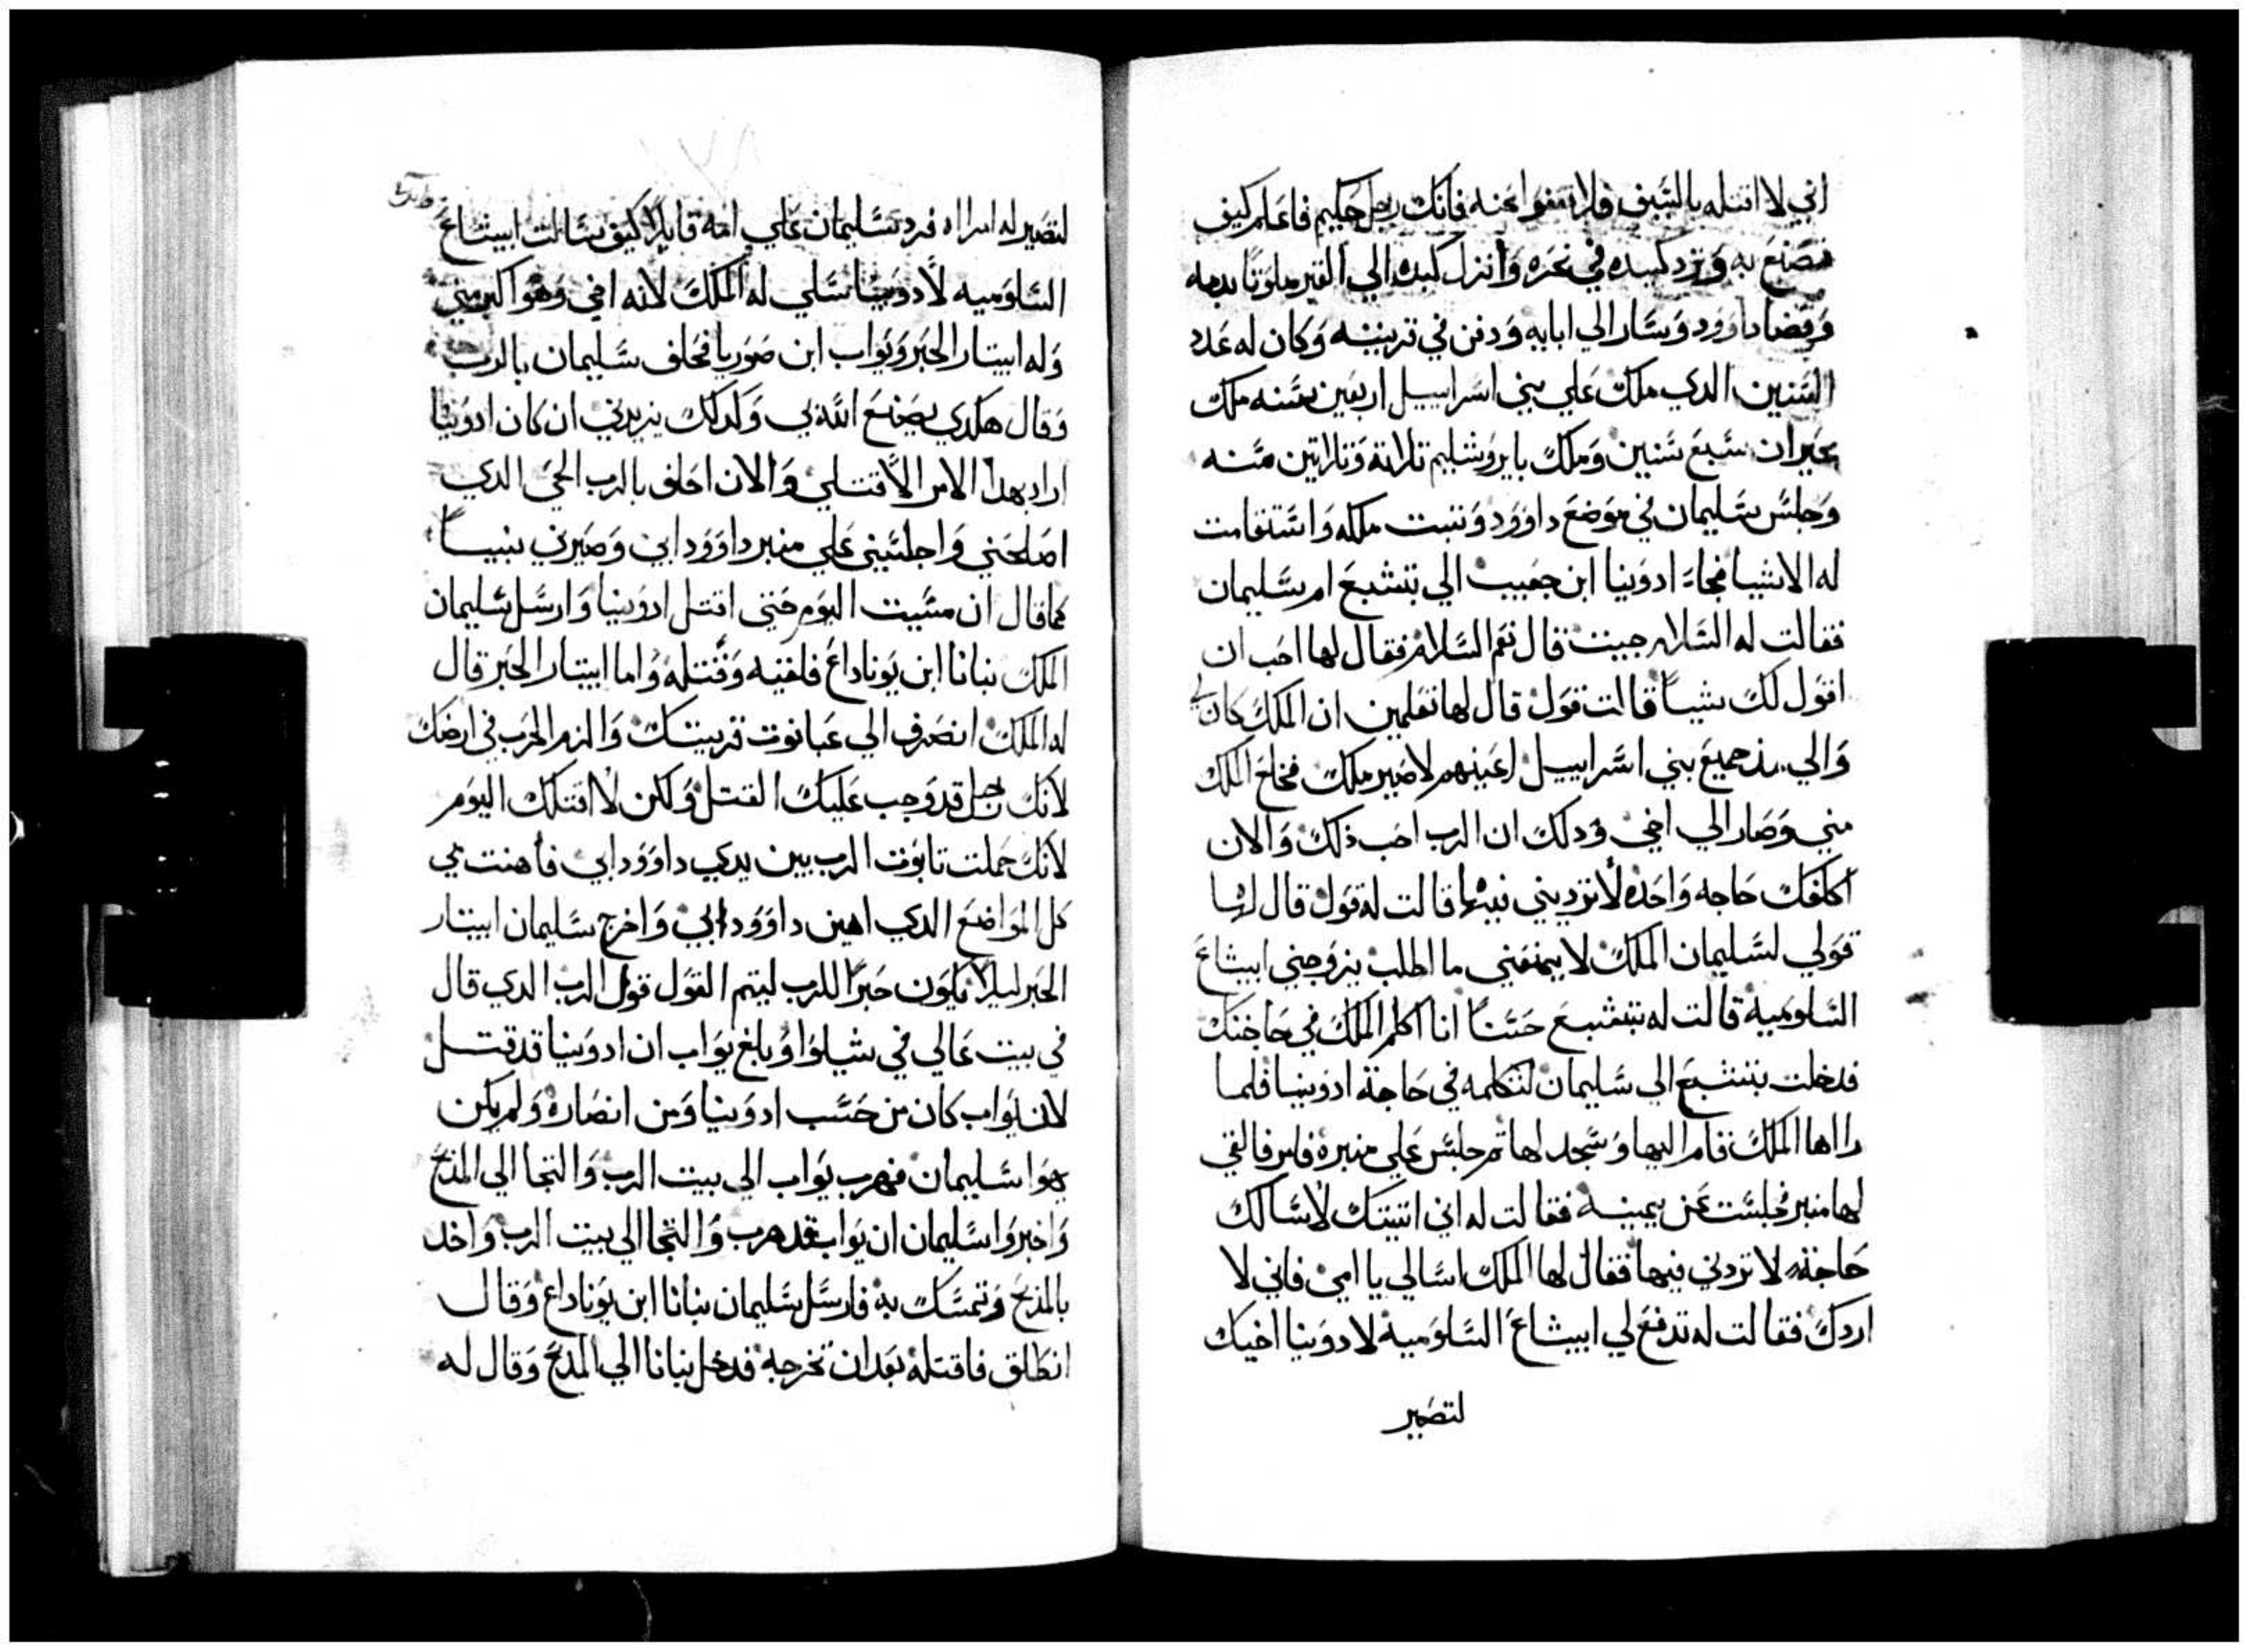 اني لا اقتله بالسَيف فلا تعفوا عنه فانك رجل حكيم فاعلم كيف
تصنع به وَترد كيده في نحره وَانزل كبده الي القبر ملوتا بدمه
وَقضا داوَود وَسَار الي ابايه وَدفن في قريته وَكان له عَدد
السَنين الدي ملك عَلي بني اسَراييل اربعَين سَنه ملك
بحَبران سَبعَ سَنين وَملك بايروُشليم تلاتة وَتلاتين سَنه
وَجلسَ سَليمان في موَضعَ داوَوَد وَتبت ملكه وَاسَتقامت
له الاشيا فجاءَ ادوَنيا ابن حجيب الي بتشبعَ ام سَليمان
فقالت له السَلام جيت قال نعَم السَلام فقال لها احَب ان
اقوَل لكَ شياً قالت قوَل قال لها تعَلمين ان الملكَ كان لي
وَالي مد جميعَ بني اسَراييل اعَينهم لاصَير ملك فخلعَ الملك
مني وَصَار الي اخي وَدلك ان الرب احَب ذلك وَالان
اكلفك حَاجه وَاحَده لا ترديني فيها قالت له قوَل قال لها
قوَلي لسَليمان الملك لا يمنعَني ما اطلب يزوَجني ابيشاعَ
السَلوَميه قالت له بتشبع حَسَناً انا اكلم الملكَ في حَاجتك
فدخلت بتشبعَ الي سَليمان لتكلمه في حَاجة ادوَنيا فلما
راها الملكَ قام اليها وَسَجد لها تم جلسَ عَلي منبره فامر فالقي
لها منبر فجلسَت عَن يمينه فقالت له اني اتيتك لاسَالك
حَاجة لا تردني فيها فقال لها الملك اسَالي يا امي فاني لا
اردكَ فقالت له تدفعَ لي ابيشاعَ السَلوَمية لادوَنيا اخيك
لتصَير
لتصَير له امراه فرد سَليمان عَلي امه قايلاً كيف سَالت ابيشاعَ
السَلوَميه لادوَنيا سَلي له الملكَ لانه اخي وَهوَ اكبر مني
وَله ابيتار الحَبر وَيوَاب ابن صَوَريا فحَلف سَليمان بالرب
وَقال هكدي يصَنعَ الله بي وَكدلك يزيدني ان كان ادوَنيا
اراد بهدا الامر الا قتلي وَالان احَلف بالرب الحَي الدي
اصَلحَني وَاجلسَني عَلي منبر داوَوَد ابي وَصَيرني نبياً
كما قال ان مسَيت اليوَم حَتي اقتل ادوَنيا وَارسَل سَليمان
الملك بنانا ابن يوَناداعَ فلقيه وَقتله وَاما ابيتار الحَبر قال
له الملك انصَرف الي عَناتوت قريتك وَالزم الحَرب في ارضك
لانك رجل قد وَجب عَليك القتل وَلكن لا اقتلك اليوَم
لانك حَملت تابوَت الرب بين يدي داوَوَد ابي فأهنت في
كل الموَاضعَ الدي اهين داوَوَد ابي وَاخرج سَليمان ابيتار
الحَبر ليلا يكوَن حَبراً للرب ليتم القوَل قوَل الرب الدي قال
في بيت عَالي في شيلوَا وَبلغ يوَاب ان ادوَنيا قد قتل
لان يوَاب كان من حَسَب ادوَنيا وَمن انصَاره وَلم يكن
يهوَا سَليمان فهرب يوَاب الي بيت الرب وَالتجا الي المذبحَ
وَاخبروَا سَليمان ان يوَاب قد هرب وَالتجا الي بيت الرب وَاخد
بالمذبحَ وَتمسَك به فارسَل سَليمان بنانا ابن يوَناداع وَقال
انطلق فاقتله بعَد ان تخرجه فدخل بنانا الي المذبحَ وَقال له